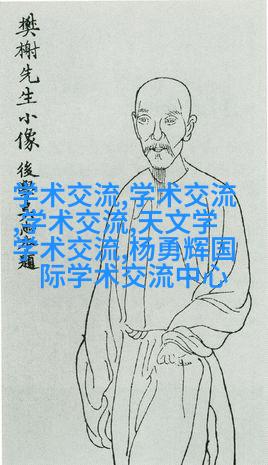 樊榭先生小像
後學
題
学术交流,学术交流
,学术交流,天文学
,学术交流,杨勇辉国
际学术交流中心